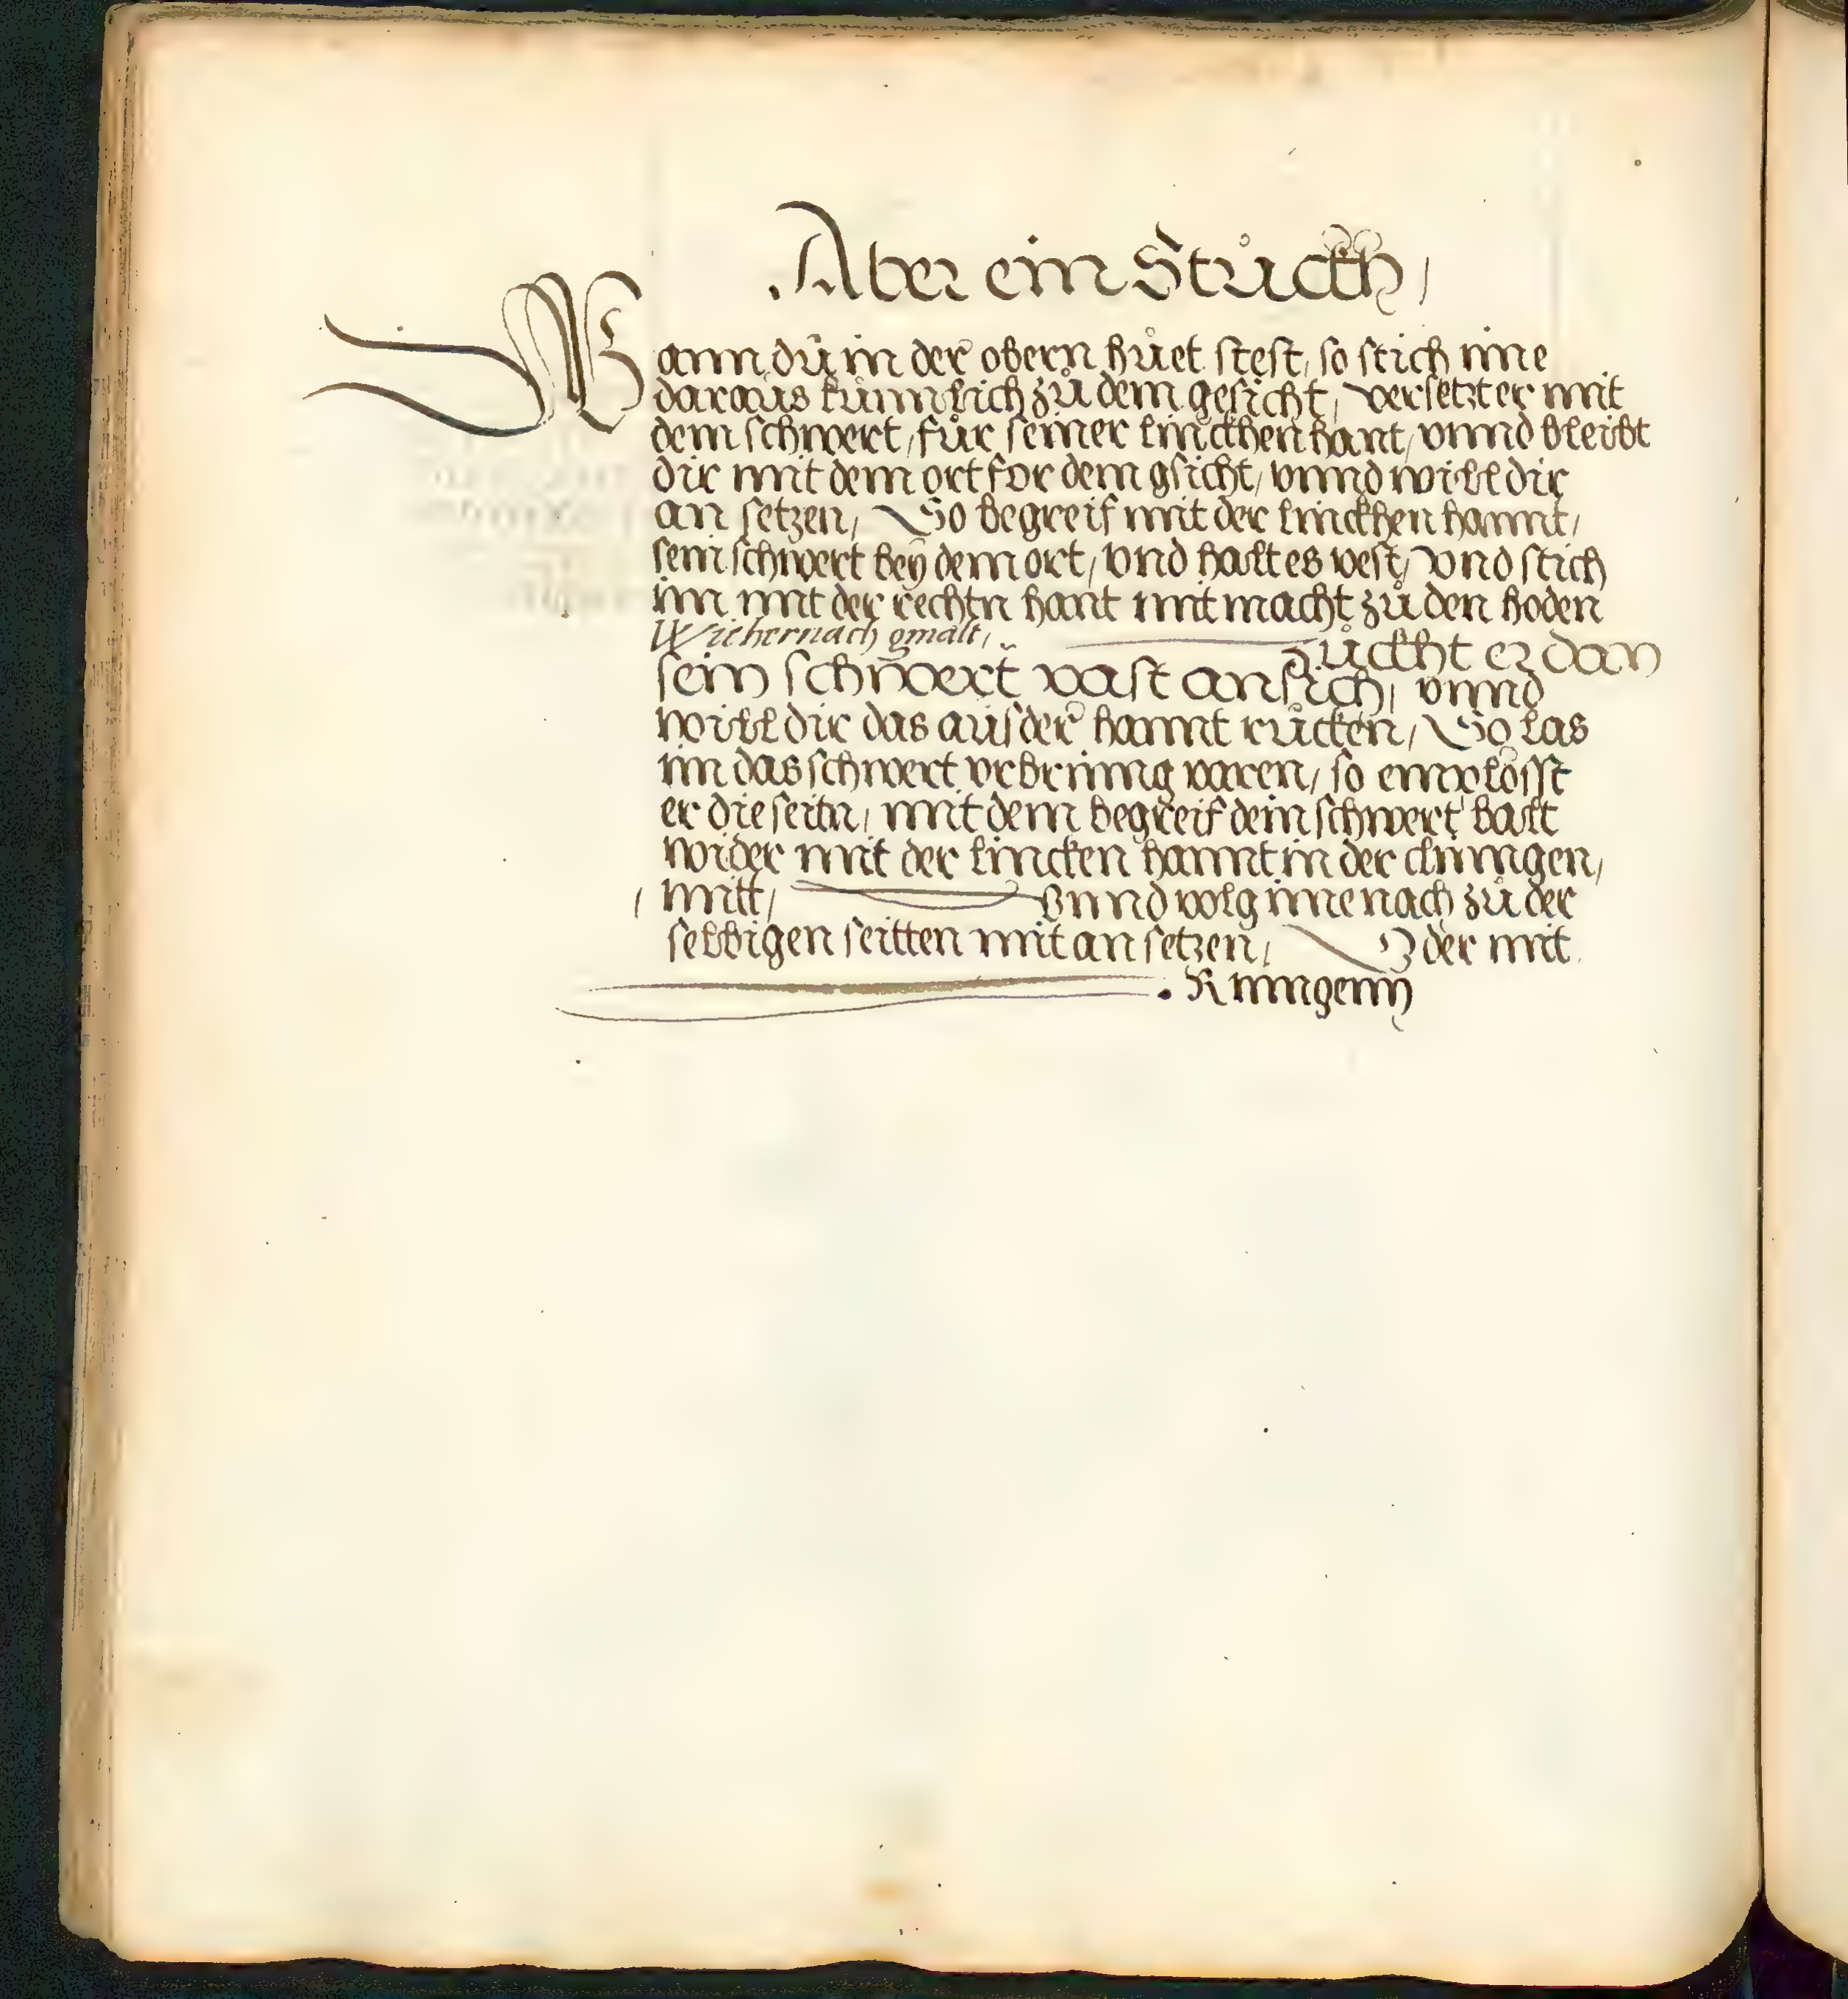 Aber ein Stůckh,
Wann dŭ in der obern hŭet stest, so stich ime
daraŭs kŭnnlich zŭ dem gesicht, versetzt er mit
dem schwert, für seiner linckhen hant, vnnd bleibt
dir mit dem ort for dem gsicht, vnnd will dir
an setzen, So begreif mit der linckhen hannt,
sein schwert beÿ dem ort, vnd halt es vest, vnd stich
im mit der rechtn hant mit macht zů den hoden
Wie hernach gmalt,
Zuckht er dan
sein schwert vast an sich, vnnd
will dir das aŭs der hannt růcken, So las
im das schwert vrbring varen, so emplösst
er die seitn, mit dem begreif dein schwert balt
wider mit der lincken hannt in der clningen,
, mitt, Vnnd volg ime nach zů der
selbigen seitten mit an setzen, Oder mit
Rinngenn